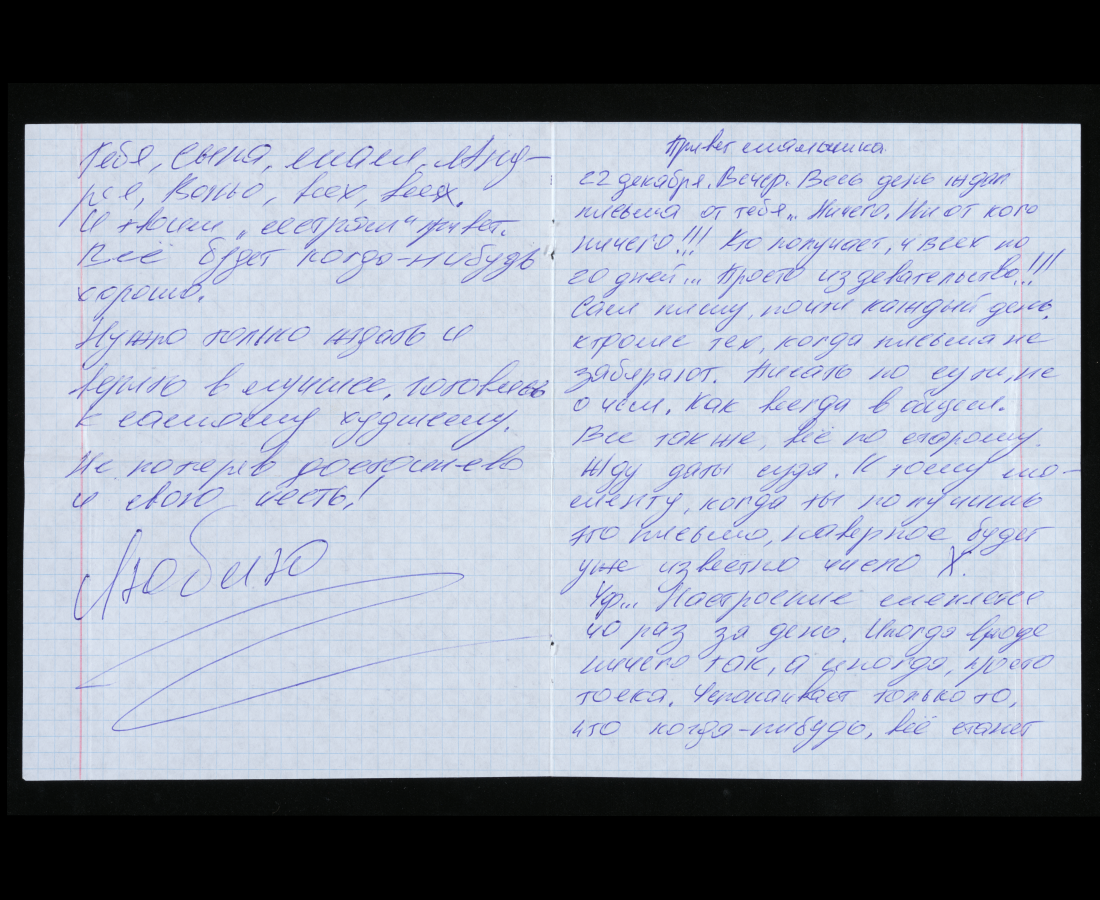 Тебя, сына, мам, Анд-
рея, Ваню, всех, всех.
И твоим „сестрам“ привет.
Всё будет когда-нибудь
хорошо.
Нужно только ждать и
верить в лучшее, готовясь
к самому худшему.
Не потеряв достоинство
и свою честь!
Люблю
Привет мамышка
22 декабря. Вечер. Весь день ждал
письма от тебя.. Ничего. Ни от кого
ничего!!! Кто получает, у всех по
20 дней... Просто издевательство..!!!
Сам пишу, почти каждый день,
кроме тех, когда письма не
забирают. Писать по сути, не
о чем. Как всегда в общем.
Все так же, всё по старому.
Жду даты суда. К тому мо-
менту, когда ты получишь
это письмо, наверное будет
уже известно число X.
Уф... Настроение меняется
40 раз за день. Иногда вроде
ничего так, а иногда, просто
тоска. Успокаивает только то,
что когда-нибудь, всё станет